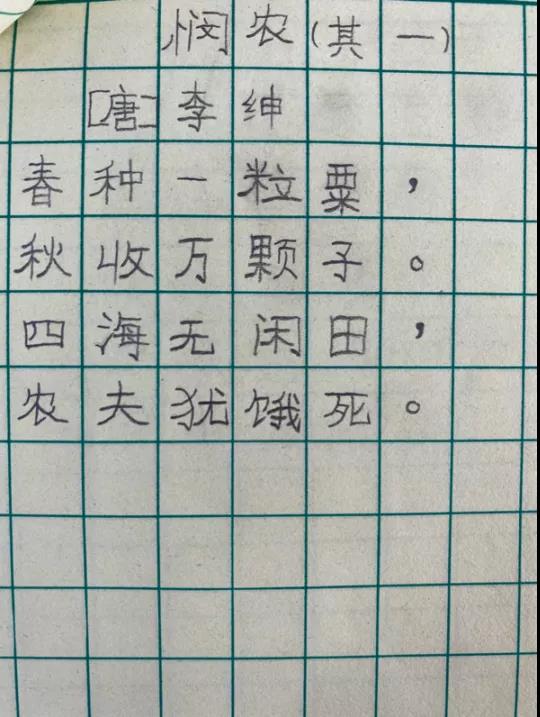 悯农(其一)
[唐]李绅
春种一粒粟，
秋收万颗子。
四海无闲田，
农夫犹饿死。